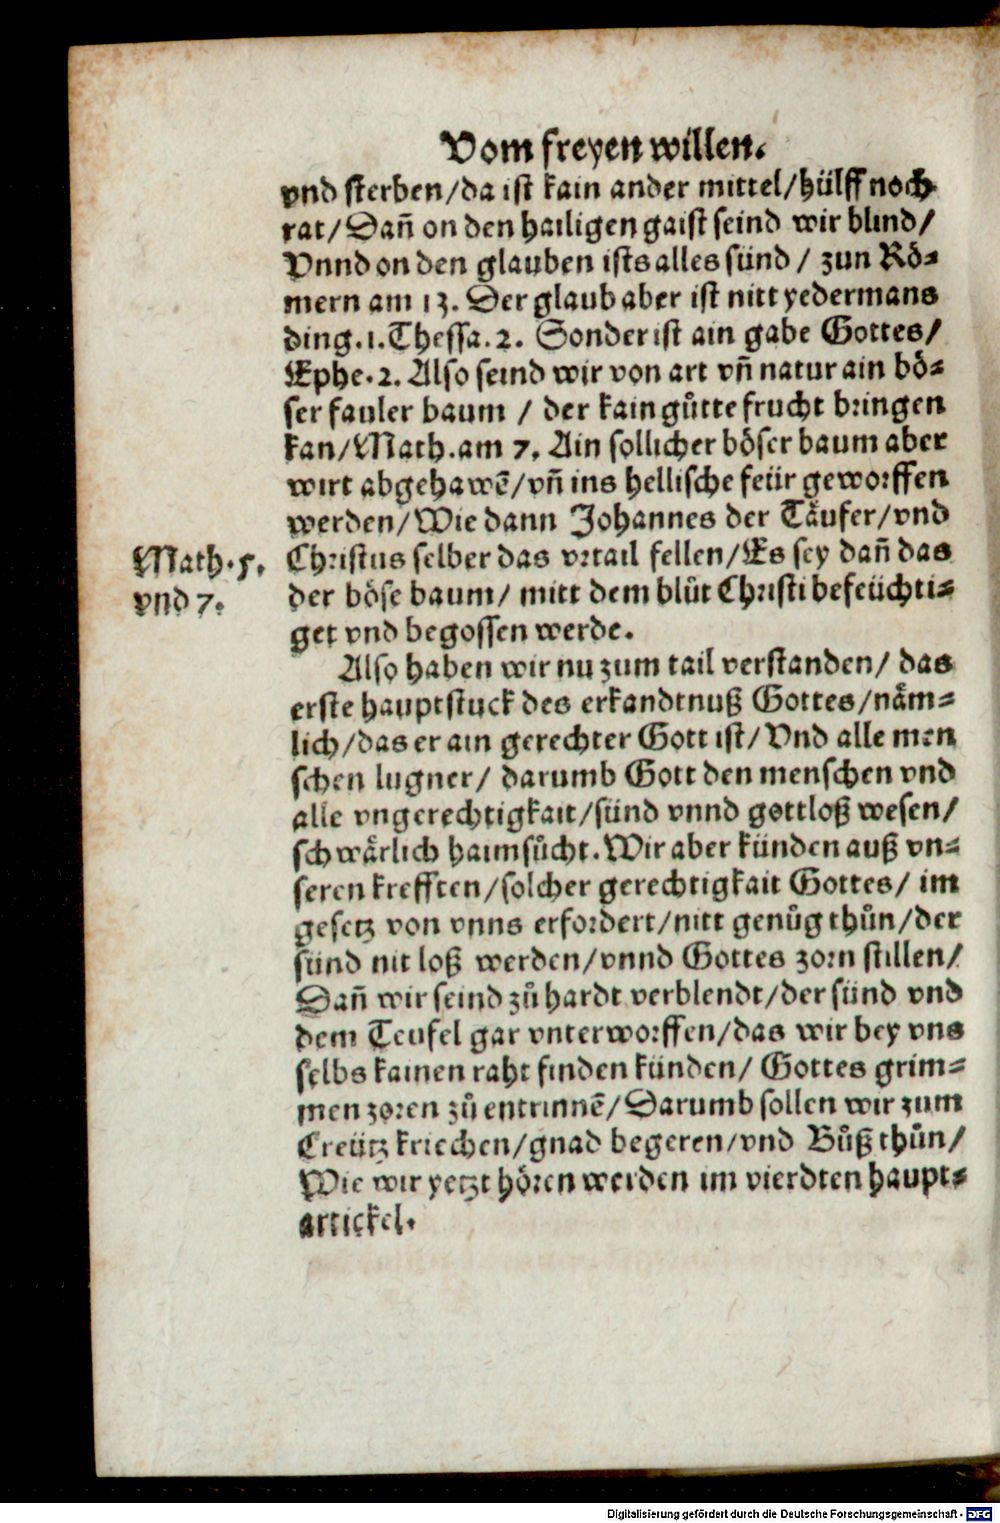 Vom freyen willen.
vnd sterben/da ist kain ander mittel/hülff noch
rat/Dañ on den hailigen gaist seind wir blind/
Vnnd on den glauben ists alles sünd / zun Rö⸗
mern am 13. Der glaub aber ist nitt yedermans
ding.1.Thessa.2. Sonder ist ain gabe Gottes/
Ephe.2. Also seind wir von art vñ natur ain bö⸗
ser fauler baum / der kain gůtte frucht bringen
kan/Math.am 7. Ain sollicher böser baum aber
wirt abgehawẽ/vñ ins hellische feür geworffen
werden/Wie dann Johannes der Täufer/vnd
Math.5. vnd 7.
Christus selber das vrtail fellen/Es sey dañ das
der böse baum/ mitt dem blůt Christi befeüchti⸗
get vnd begossen werde.
Also haben wir nu zum tail verstanden/ das
erste hauptstuck des erkandtnuß Gottes/näm⸗
lich/das er ain gerechter Gott ist/Vnd alle men
schen lugner/ darumb Gott den menschen vnd
alle vngerechtigkait/sünd vnnd gottloß wesen/
schwärlich haimsůcht.Wir aber künden auß vn⸗
seren krefften/solcher gerechtigkait Gottes/ im
gesetz von vnns erfordert/nitt genůg thůn/der
sünd nit loß werden/vnnd Gottes zorn stillen/
Dañ wir seind zů hardt verblendt/der sünd vnd
dem Teufel gar vnterworffen/das wir bey vns
selbs kainen raht finden künden/ Gottes grim⸗
men zoren zů entrinnẽ/Darumb sollen wir zum
Creütz kriechen/gnad begeren/vnd Bůß thůn/
Wie wir yetzt hören werden im vierdten haupt⸗
artickel.
Digitalisierung gefördert durch die Deutsche Forschungsgemeinschaft - DFG